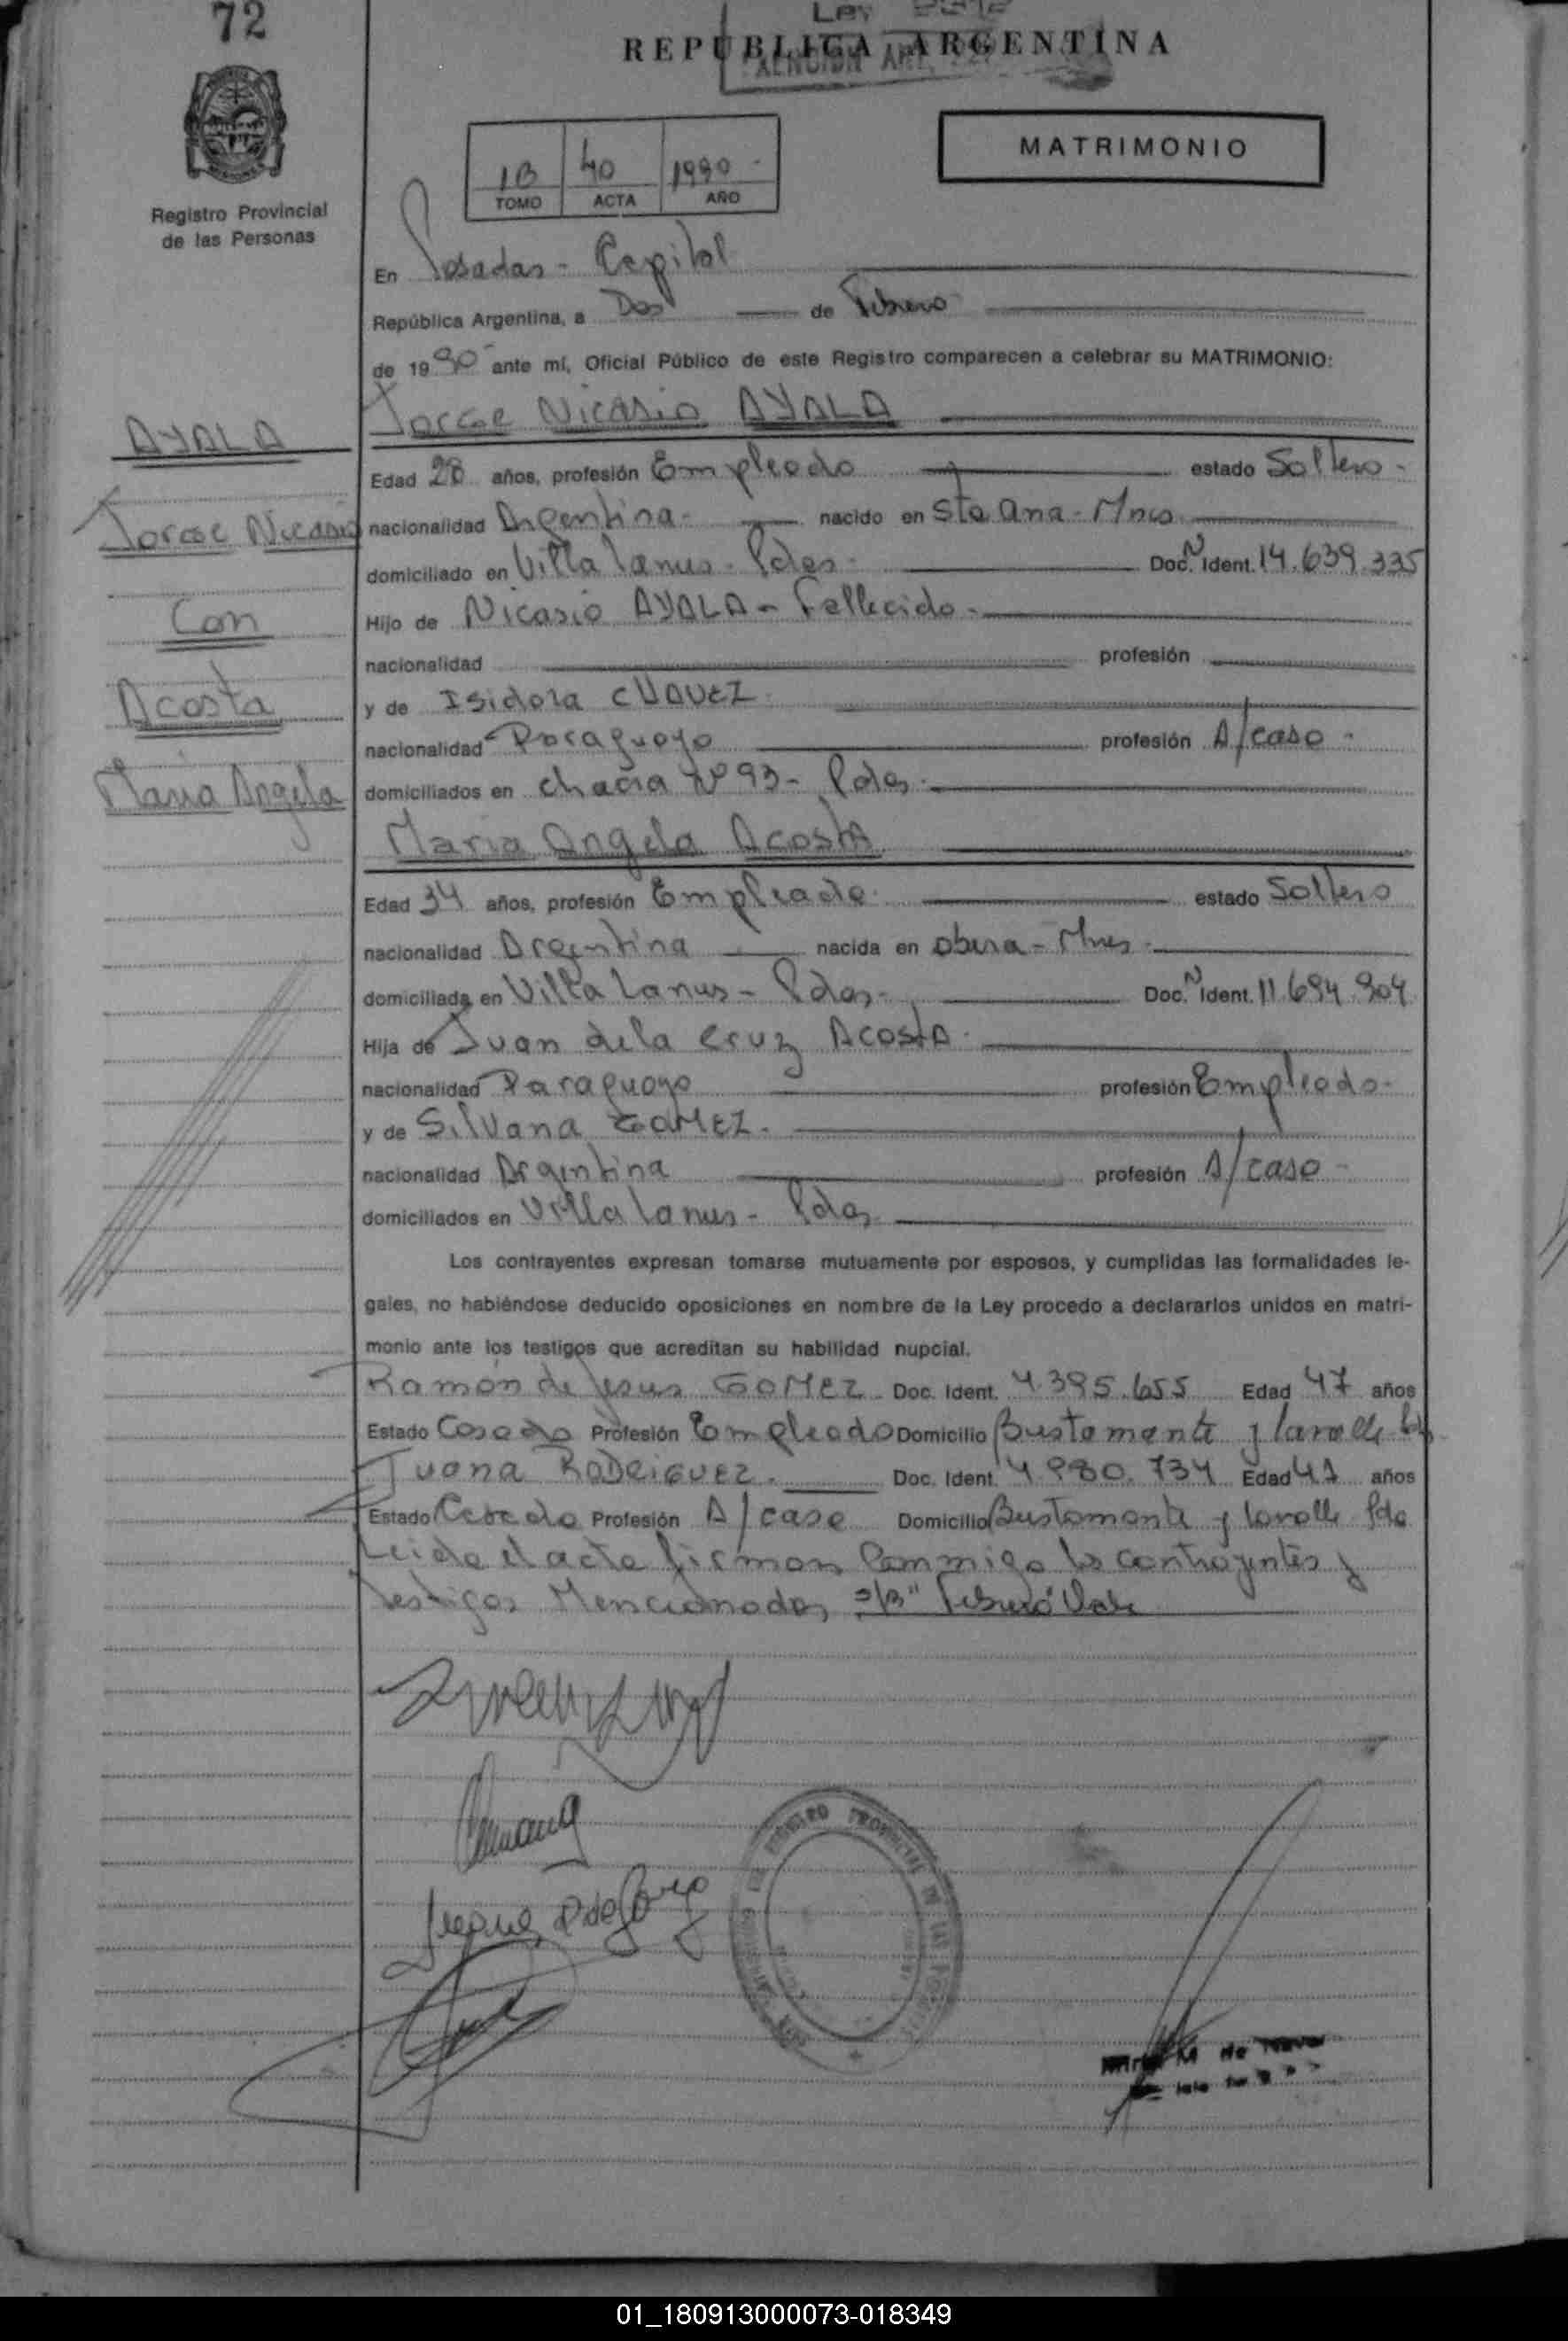 72
Ley
REPUBLICA ARGENTINA
MATRIMONIO
1B 40 1990
TOMO ACTA AÑO
Registro Provincial
de las Personas
En Posadas - Capital
República Argentina, a Dos de Febrero
de 1990 ante mí, Oficial Público de este Registro comparecen a celebrar su MATRIMONIO:
Jorge Nicasio AYALA
AYALA
Jorge Nicasio
Con
Acosta
Maria Angela
Edad 28 años, profesión Empleado estado Soltero -
nacionalidad Argentina - nacido en Sta Ana - Mnes
domiciliado en Villa Lanus - Pdas - Doc. N Ident. 14.639.335
Hijo de Nicasio AYALA - Fallecido -
nacionalidad profesión
y de Isidora CHAVEZ
nacionalidad Paraguaya profesión A/casa -
domiciliados en chacra Nº 93 - Pdas -
Maria Angela Acosta
Edad 34 años, profesión Empleada estado Soltera
nacionalidad Argentina nacida en Obera - Mnes -
domiciliada en Villa Lanus - Pdas - Doc. N Ident. 11.694.904
Hija de Juan de la Cruz Acosta
nacionalidad Paraguayo profesión Empleado -
y de Silvana GOMEZ -
nacionalidad Argentina profesión A/casa -
domiciliados en Villa Lanus - Pdas
Los contrayentes expresan tomarse mutuamente por esposos, y cumplidas las formalidades le-
gales, no habiéndose deducido oposiciones en nombre de la Ley procedo a declararlos unidos en matri-
monio ante los testigos que acreditan su habilidad nupcial.
Ramón de Jesus GOMEZ Doc. Ident. 4.395.655 Edad 47 años
Estado Casado Profesión Empleado Domicilio Bustamante y Lavalle
Juana RODRIGUEZ Doc. Ident. 4.980.734 Edad 41 años
Estado Casada Profesión A/casa Domicilio Bustamante y Lavalle Pda
Leida el acta firman conmigo los contrayentes y
testigos Mencionados s/B" Febrero" Vale
01_180913000073-018349